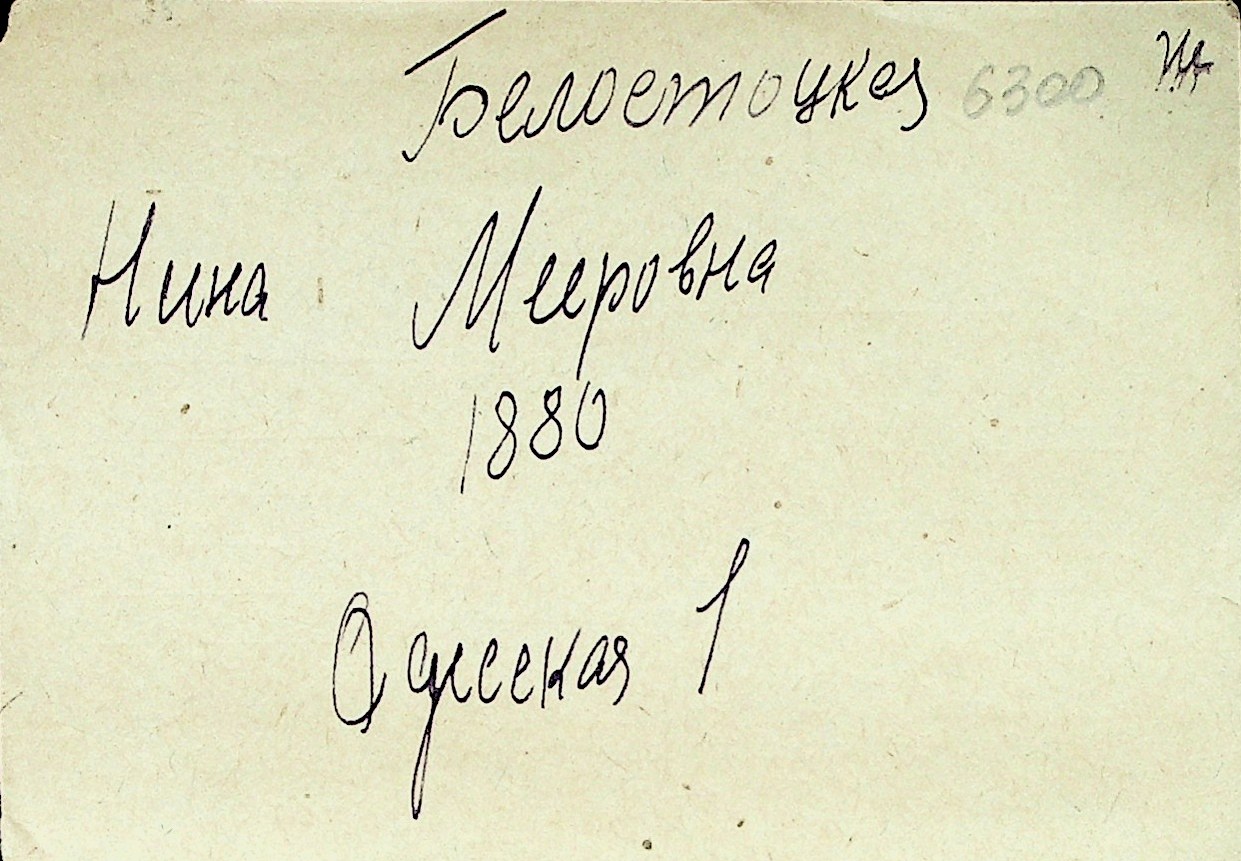 Белостоцкая 6300 Ж
Нина Мееровна
1880
Одесская 1